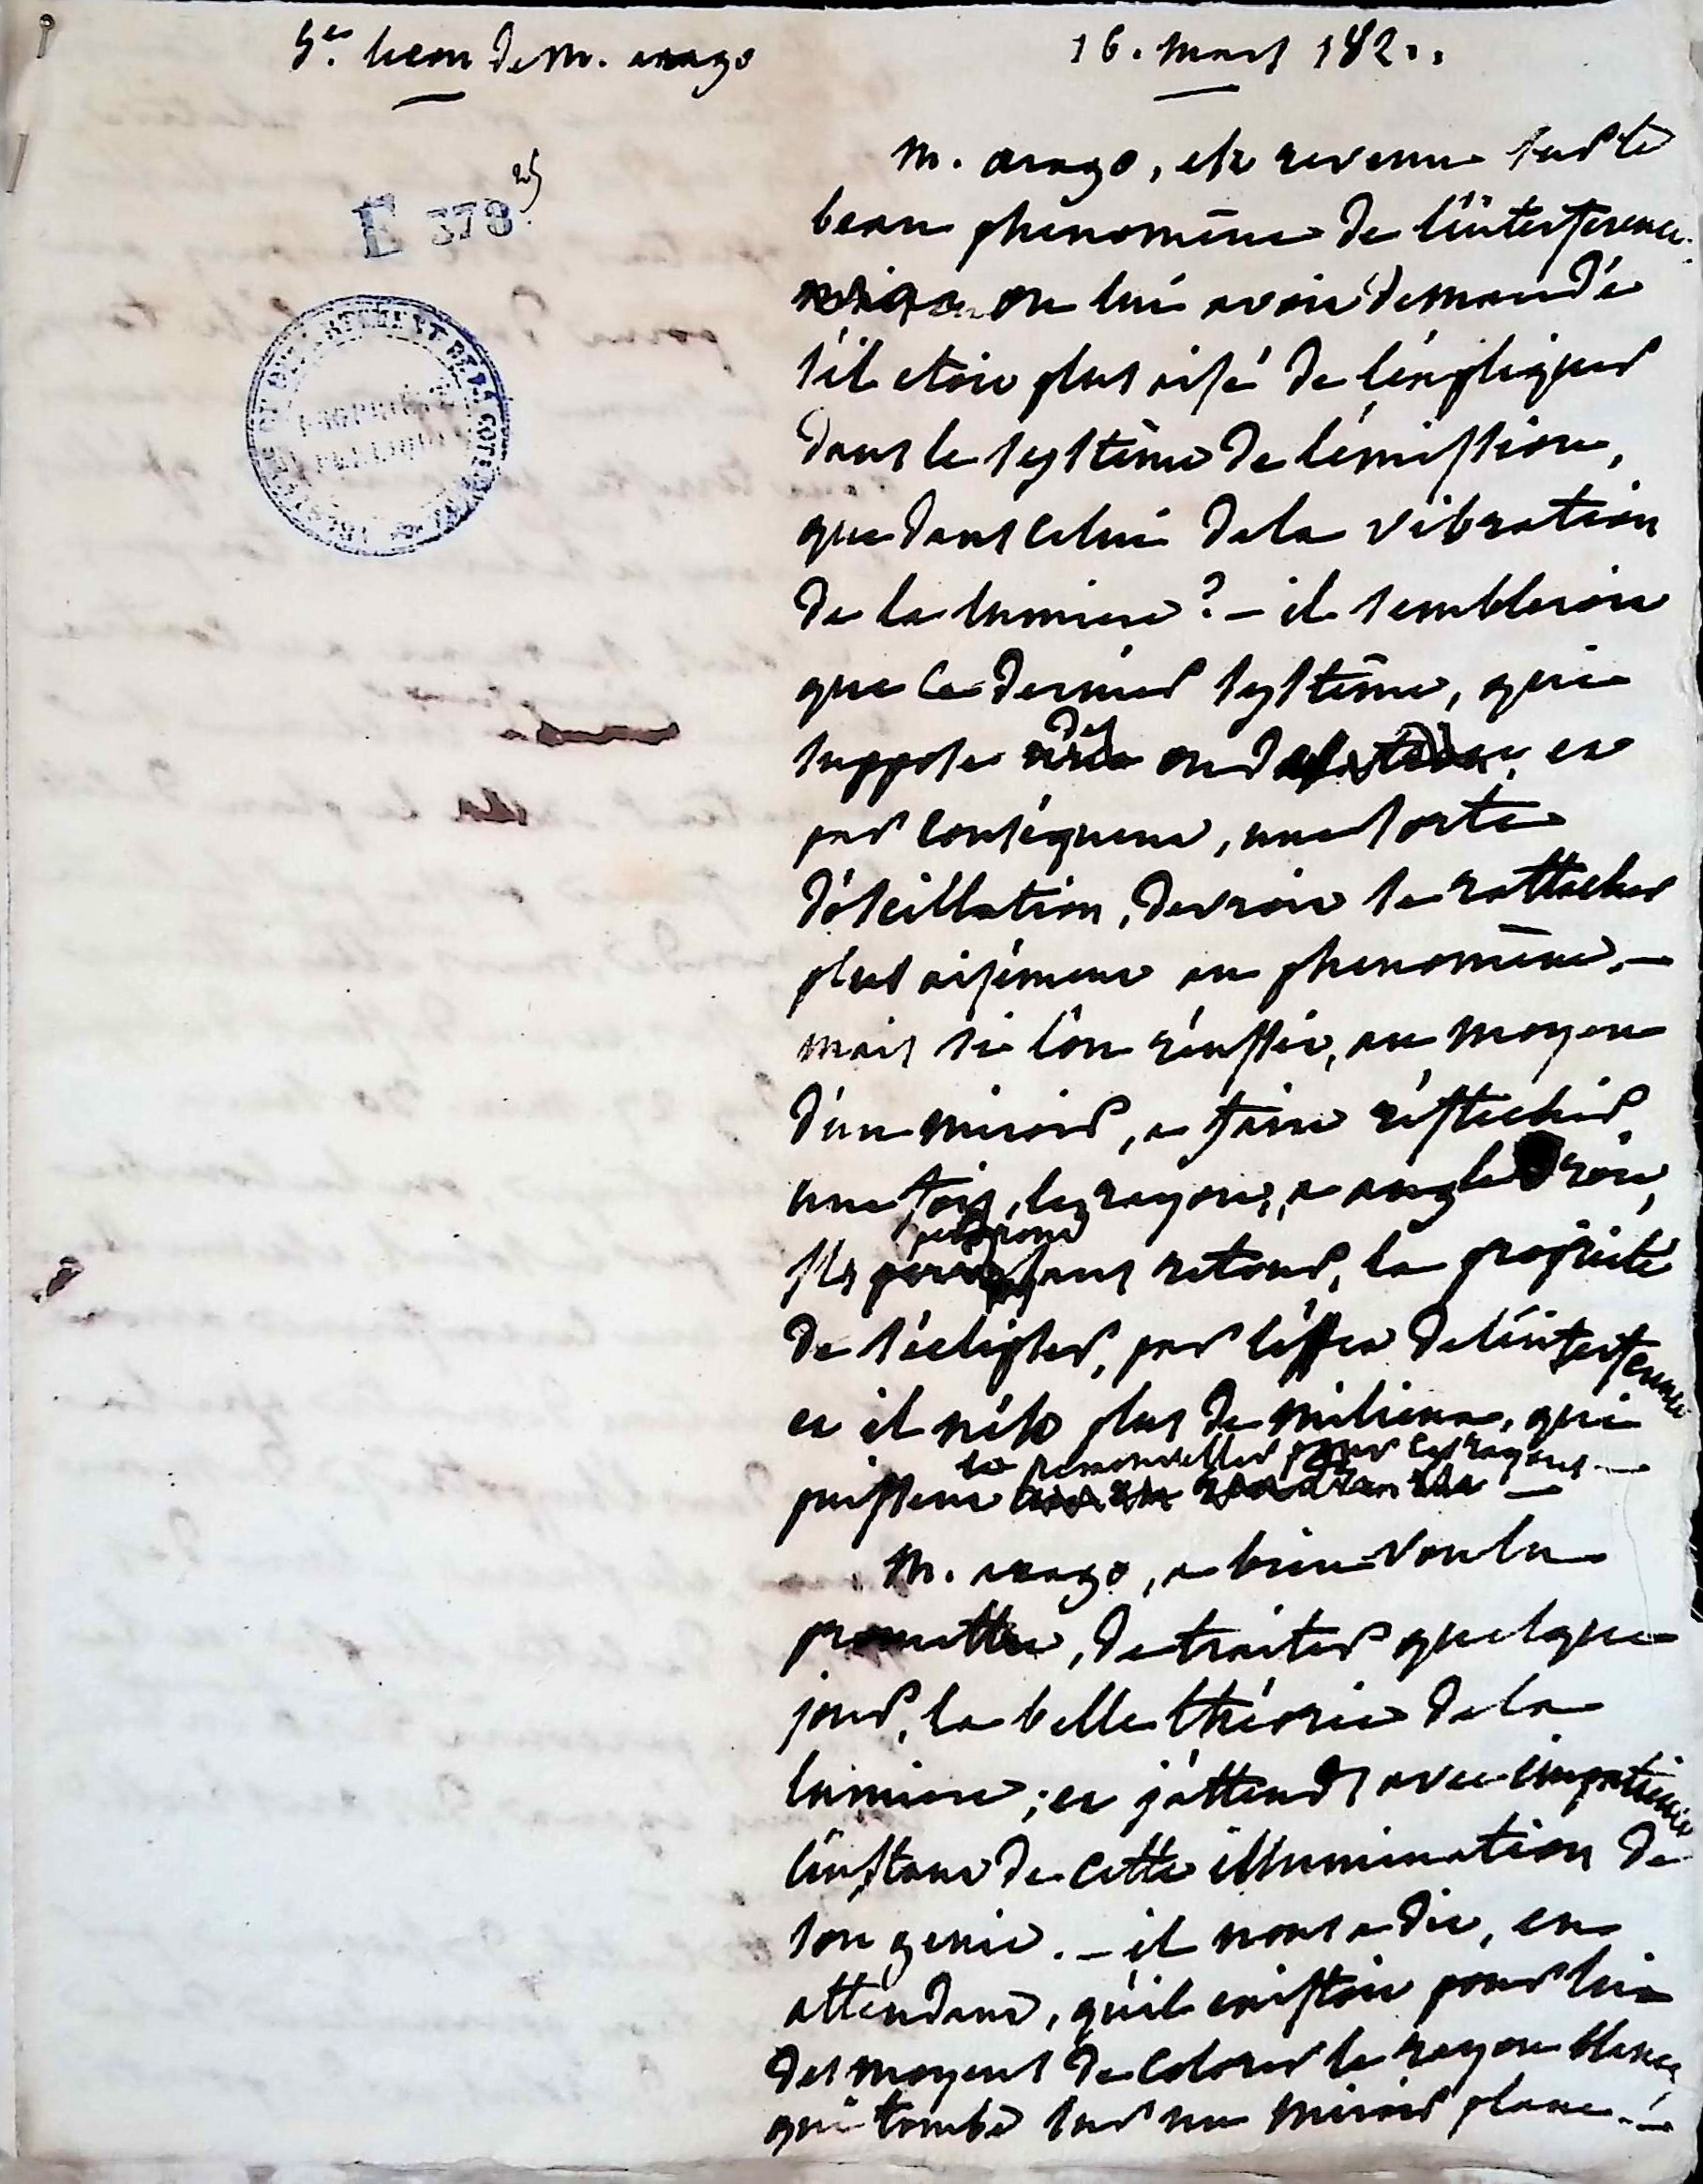 5.e lecon de M. arago
16. mars 182..
E 378 25
M. arago, est revenu sur le
beau phenomêne de l'interference.
on lui avoit demandé
s'il etoit plus aisé de l'expliquer
dans le systême de l'emission,
que dans celui de la vibration
de la lumiere ? – il sembleroit
que ce dernier systême, qui
suppose des et
par conséquent, une sorte
d'oscillation, devroit se rattacher
plus aisément au phenomêne. –
mais si l'on réussit, au moyen
d'un miroir, a faire réflechir
une fois, les rayons, a angle droit,
ils perdront sans retour, la propriété
de s'éclipser, par l'effet de l'interference
et il n'est plus de milieux, qui
puissent la renouveller pour ces rayons. –
M. arago, a bien voulu
promettre, de traiter quelque
jour, la belle théorie de la
lumiere ; et j'attends avec impatience
l'instant de cette illumination de
son genie. – il nous a dit, en
attendant, qu'il existoit pour lui
des moyens de colorer le rayon blanc,
qui tombe sur un miroir plane. –